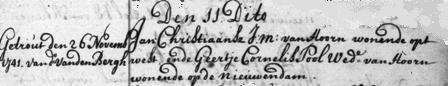 Den 11 Dito
Getrout den 26 Novemb
1741. van d Vanden Bergh
Jan Christiaansz J.m: van Hoorn wonende opt
west ende Geertje Cornelis Pool Wed.e van Hoorn
wonende op de nieuwendam.